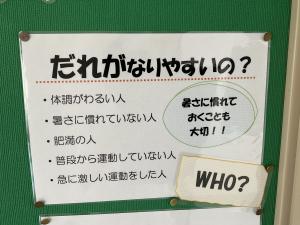 だれがなりやすいの？
・体調がわるい人
・暑さに慣れていない人
・肥満の人
・普段から運動していない人
・急に激しい運動をした人
暑さに慣れて
おくことも
大切！！
WHO?